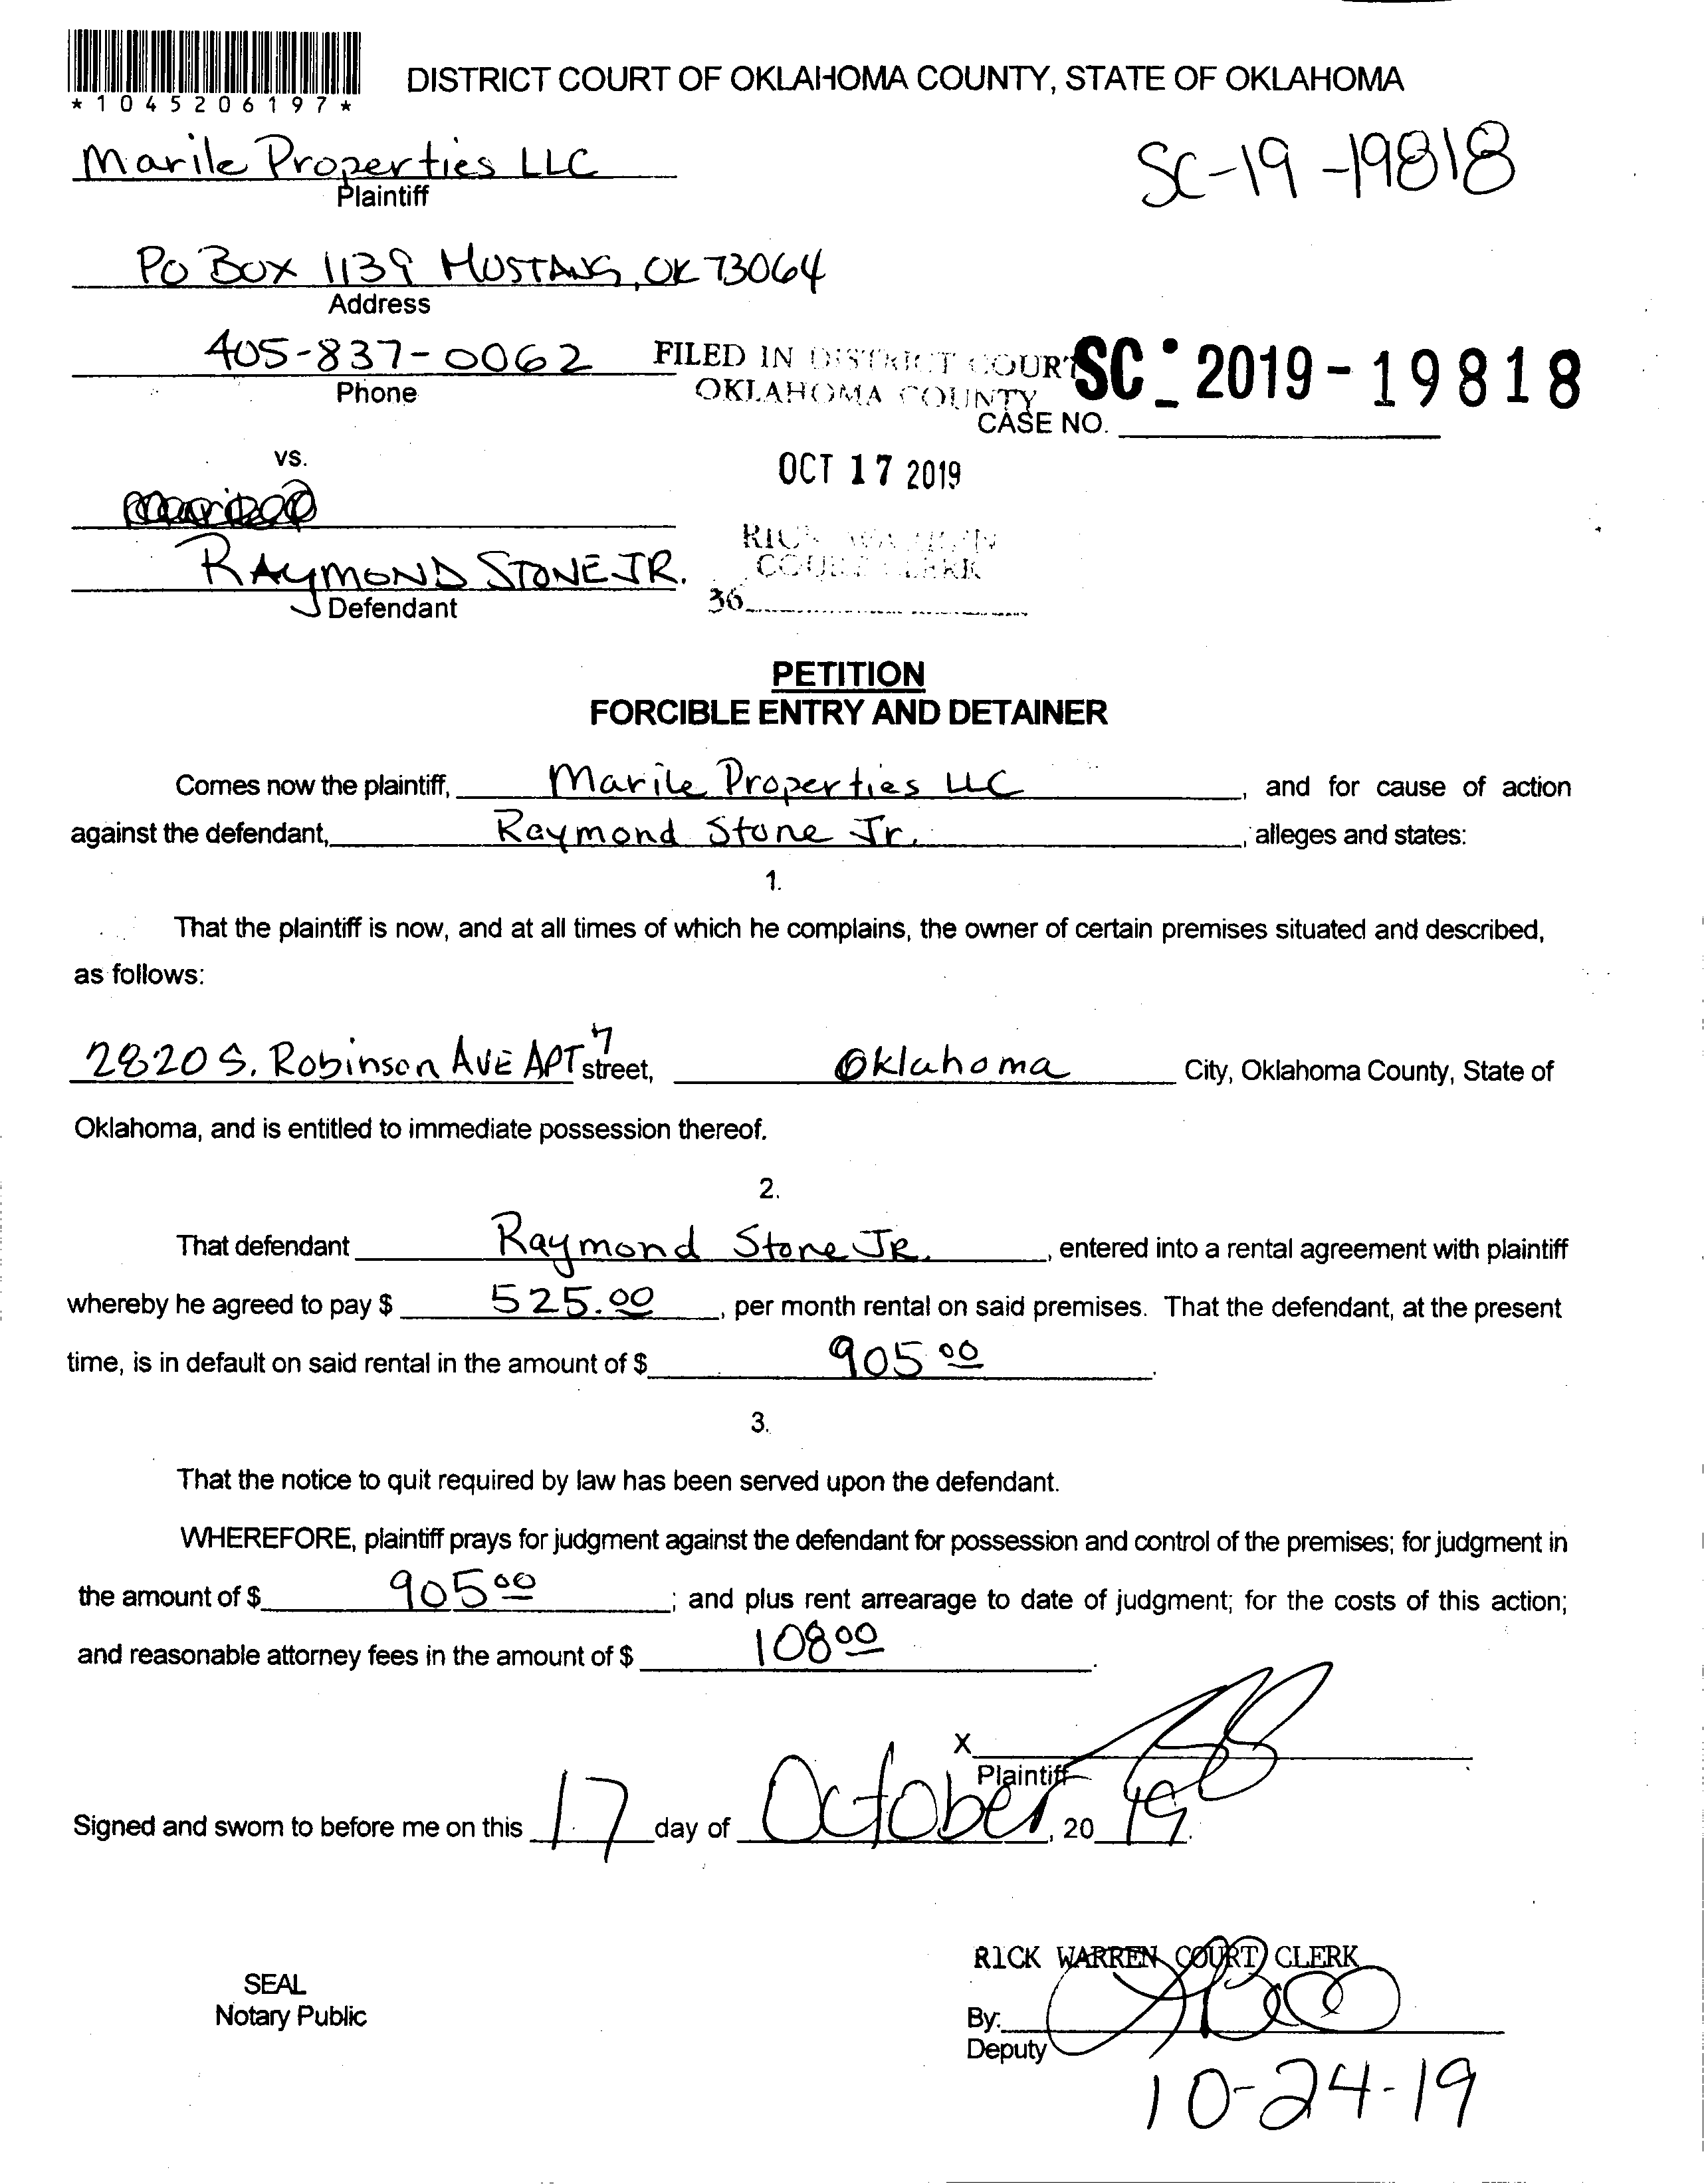 *1045206197*
DISTRICT COURT OF OKLAHOMA COUNTY, STATE OF OKLAHOMA
Marile Properties LLC
Plaintiff
SC-19-19818
PO BOX 1139 MUSTANG, OK 73064
Address
405-837-0062
Phone
FILED IN DISTRICT COURT
OKLAHOMA COUNTY
SC - 2019-19818
CASE NO.
vs.
OCT 17 2019
RAYMOND STONE JR.
Defendant
RICK WARREN
COURT CLERK
36
PETITION
FORCIBLE ENTRY AND DETAINER
Comes now the plaintiff, Marile Properties LLC, and for cause of action
against the defendant, Raymond Stone Jr., alleges and states:
1.
That the plaintiff is now, and at all times of which he complains, the owner of certain premises situated and described,
as follows:
2820 S. Robinson AVE APT 7 street, Oklahoma City, Oklahoma County, State of
Oklahoma, and is entitled to immediate possession thereof.
2.
That defendant Raymond Stone JR., entered into a rental agreement with plaintiff
whereby he agreed to pay $ 525.00, per month rental on said premises. That the defendant, at the present
time, is in default on said rental in the amount of $ 905 00.
3.
That the notice to quit required by law has been served upon the defendant.
WHEREFORE, plaintiff prays for judgment against the defendant for possession and control of the premises; for judgment in
the amount of $ 905 00; and plus rent arrearage to date of judgment; for the costs of this action;
and reasonable attorney fees in the amount of $ 108 00.
X
Plaintiff
Signed and sworn to before me on this 17 day of October, 20 19.
RICK WARREN COURT CLERK
SEAL
Notary Public
By:
Deputy
10-24-19